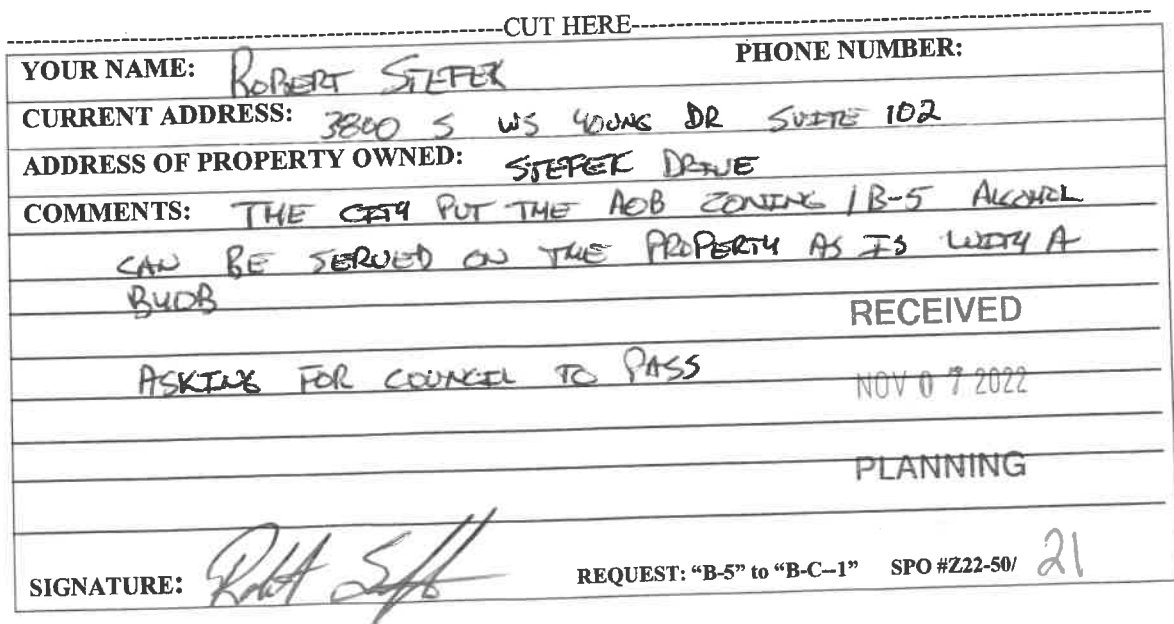 CUT HERE
YOUR NAME: ROBERT STEFEK PHONE NUMBER:
CURRENT ADDRESS: 3800 S WS YOUNG DR SUITE 102
ADDRESS OF PROPERTY OWNED: STEFEK DRIVE
COMMENTS: THE CITY PUT THE AOB ZONING / B-5 ALCOHOL
CAN BE SERVED ON THE PROPERTY AS IS WITH A
BYOB
RECEIVED
ASKING FOR COUNCIL TO PASS
NOV 07 2022
PLANNING
SIGNATURE: REQUEST: "B-5" to "B-C--1" SPO #Z22-50/ 21